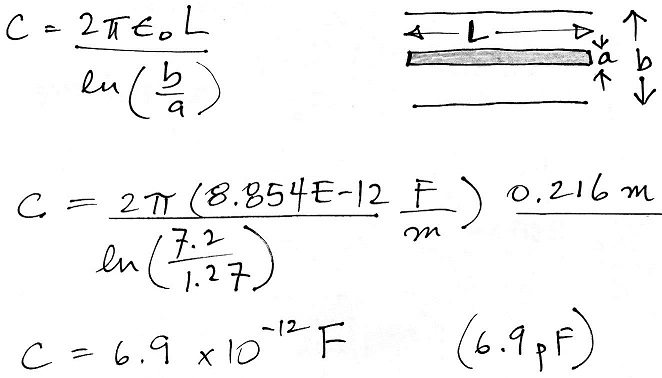 C = 2πϵ₀L / ln(b/a)
L
a b
C = 2π(8.854E-12 F/m) 0.216 m / ln(7.2/1.27)
C = 6.9 × 10⁻¹² F (6.9 pF)